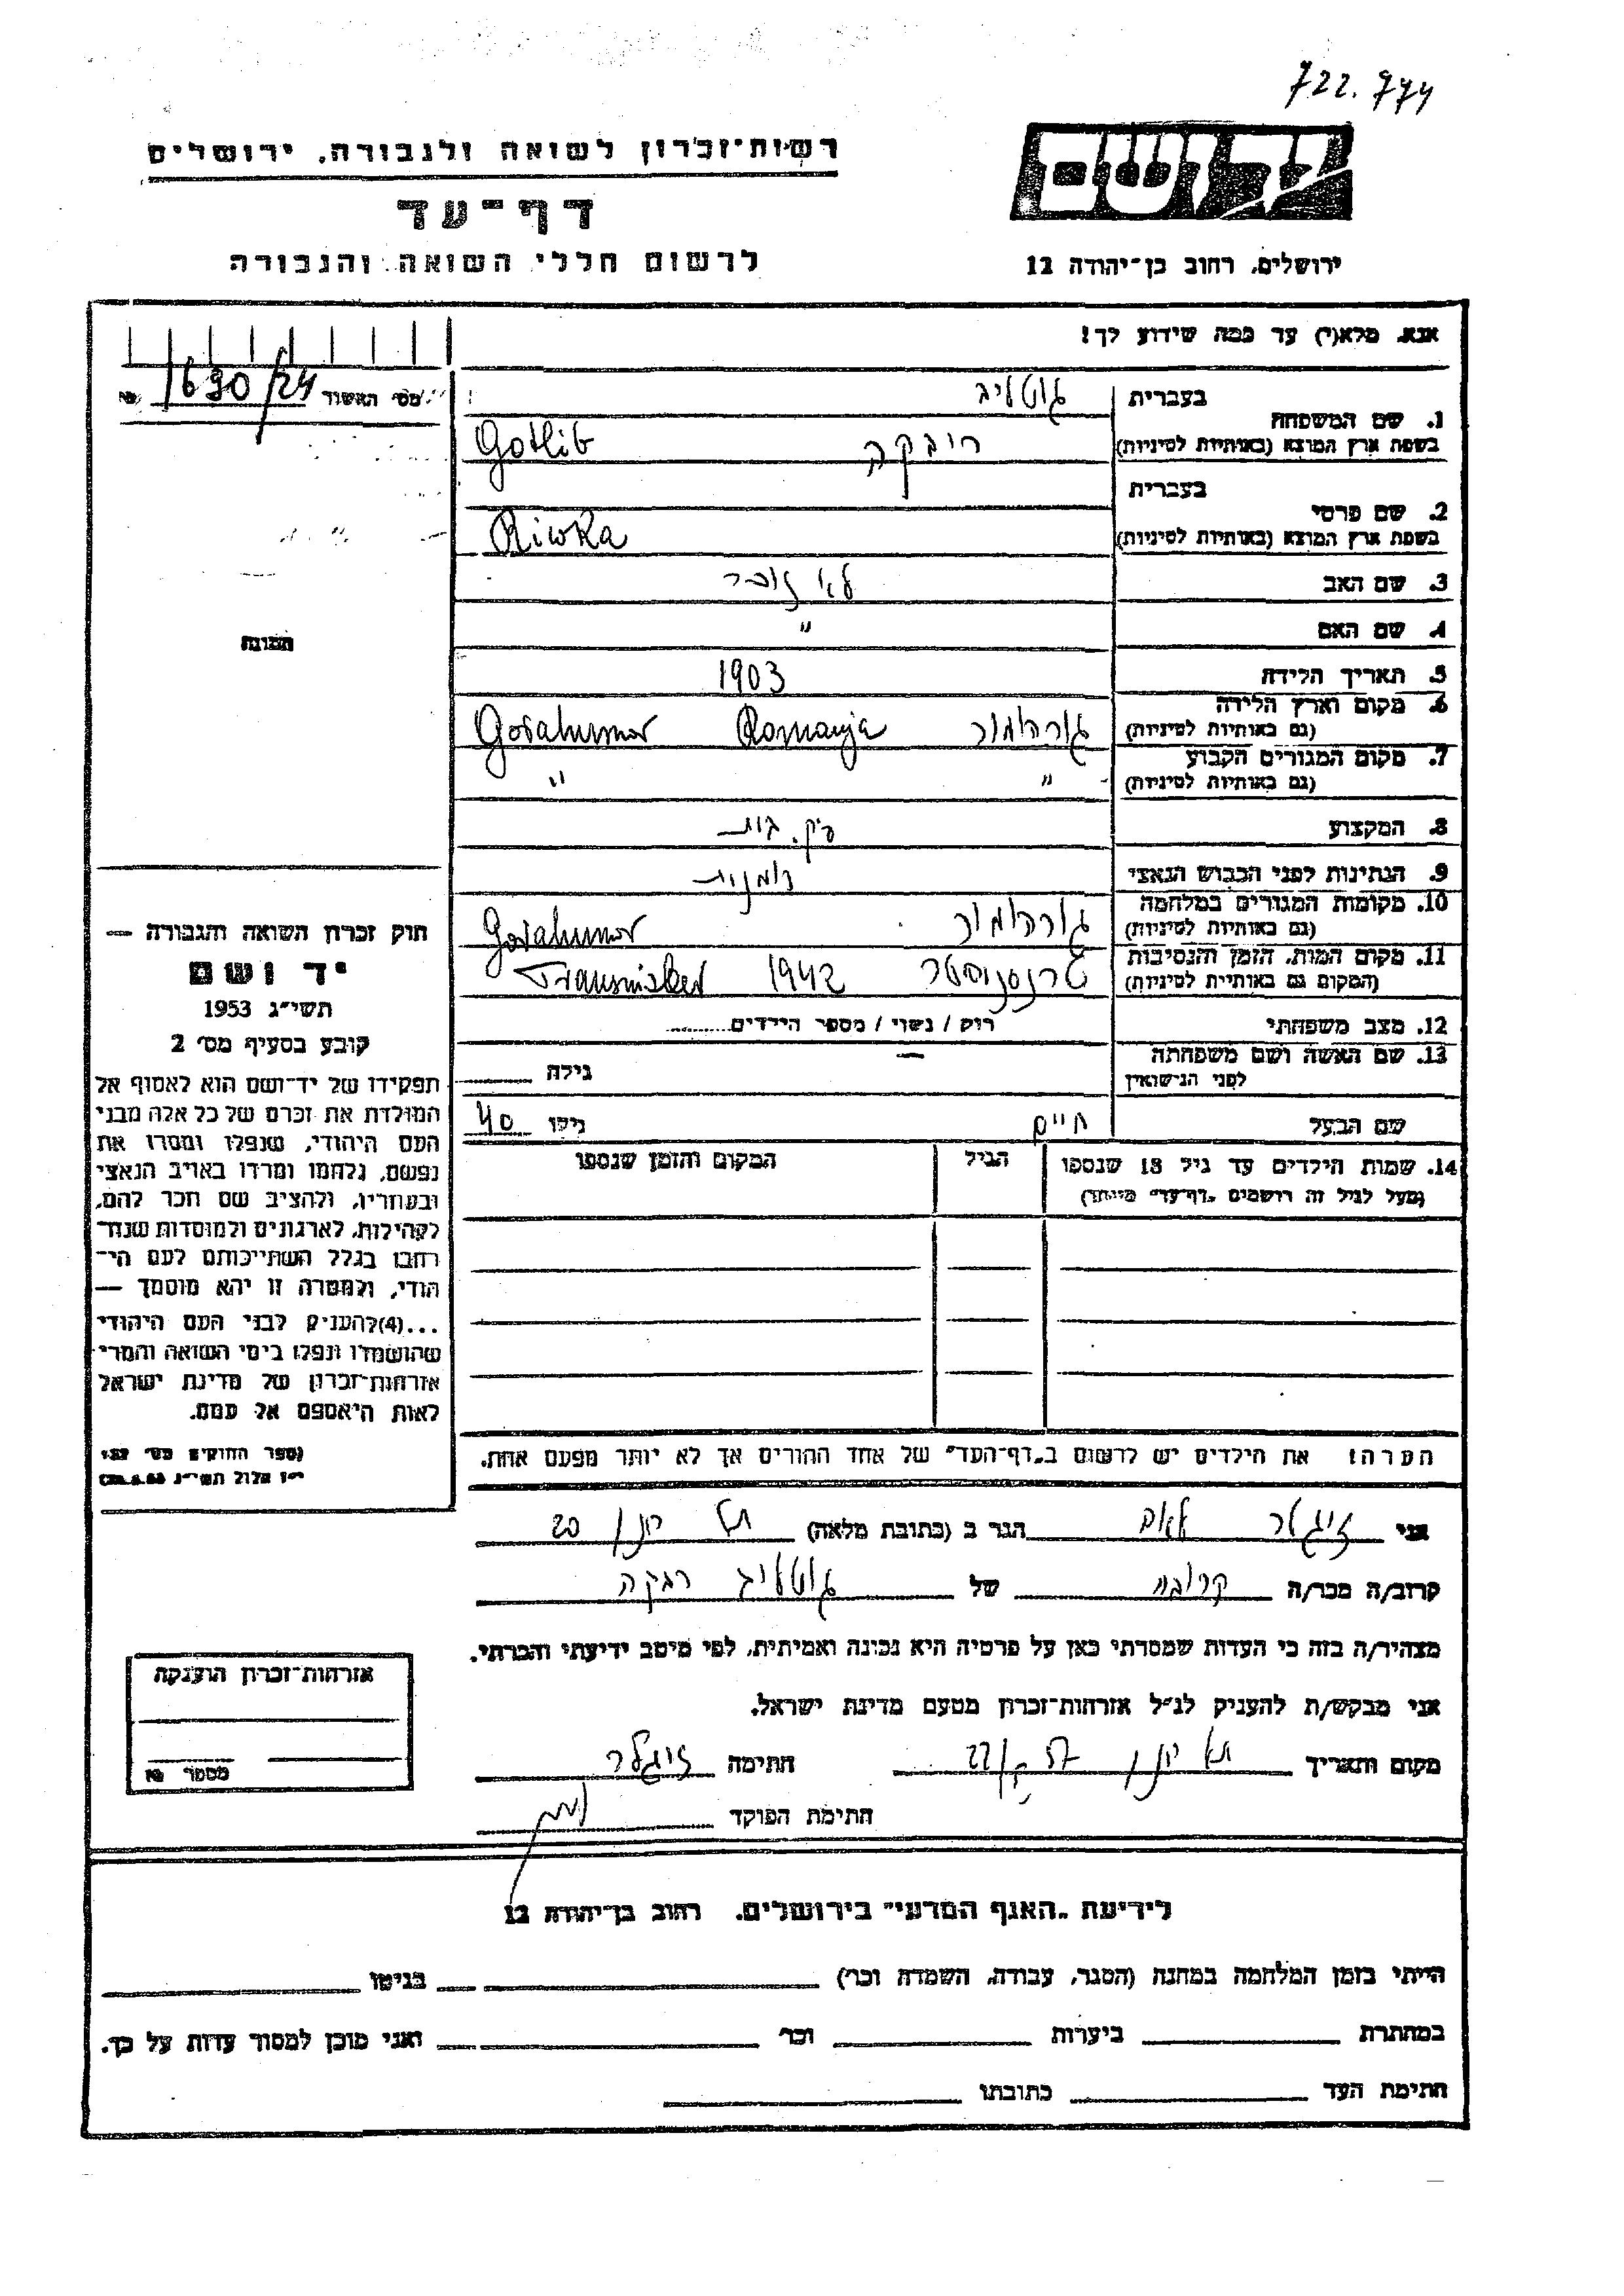 722.774
רשות־זכרון לשואה ולגבורה, ירושלים
יד ושם
דף־עד
לרשום חללי השואה והגבורה
ירושלים, רחוב בן־יהודה 12
אנא, מלא(י) עד כמה שידוע לך!
מס׳ האשור 1690/24 №
1. שם המשפחה
בעברית גוטליב
בשפת ארץ המוצא (באותיות לטיניות) ריבקה Gotlib
2. שם פרטי
בעברית
בשפת ארץ המוצא (באותיות לטיניות) Riwka
3. שם האב לא זוכר
4. שם האם "
5. תאריך הלידה 1903
6. מקום וארץ הלידה
(גם באותיות לטיניות) גורהומור Romanja Gorahumor
7. מקום המגורים הקבוע
(גם באותיות לטיניות) " "
8. המקצוע עק. בית
9. הנתינות לפני הכבוש הנאצי רומנית
10. מקומות המגורים במלחמה
(גם באותיות לטיניות) גורהומור Gorahumor
11. מקום המות, הזמן והנסיבות
(המקום גם באותיות לטיניות) טרנסניסטר 1942 Transnister
12. מצב משפחתי רווק / נשוי / מספר הילדים
13. שם האשה ושם משפחתה
לפני הנישואין — גילה
שם הבעל חיים גילו 40
14. שמות הילדים עד גיל 18 שנספו הגיל המקום והזמן שנספו
(מעל לגיל זה רושמים "דף־עד" מיוחד)
הערה: את הילדים יש לרשום ב"דף־העד" של אחד ההורים אך לא יותר מפעם אחת.
תמונה
חוק זכרון השואה והגבורה —
יד ושם
תשי״ג 1953
קובע בסעיף מס׳ 2
תפקידו של יד־ושם הוא לאסוף אל
המולדת את זכרם של כל אלה מבני
העם היהודי, שנפלו ומסרו את
נפשם, נלחמו ומרדו באויב הנאצי
ובעוזריו, ולהציב שם וזכר להם,
לקהילות, לארגונים ולמוסדות שנח־
רבו בגלל השתייכותם לעם הי־
הודי, ולמטרה זו יהא מוסמך —
...(4) להעניק לבני העם היהודי
שהושמדו ונפלו בימי השואה והמרי
אזרחות־זכרון של מדינת ישראל
לאות היאספם אל עמם.
(ספר החוקים מס׳ 132
י״ז אלול תשי״ג 28.8.53)
אני זיגלר הגר ב (כתובת מלאה) 20
קרוב/ה מכר/ה קרובה של גוטליב רבקה
מצהיר/ה בזה כי העדות שמסרתי כאן על פרטיה היא נכונה ואמיתית, לפי מיטב ידיעתי והכרתי.
אני מבקש/ת להעניק לנ״ל אזרחות־זכרון מטעם מדינת ישראל.
מקום ותאריך חתימה זיגלר
חתימת הפוקד
אזרחות־זכרון הוענקה
מספר №
לידיעת "האגף המדעי" בירושלים. רחוב בן־יהודה 12
הייתי בזמן המלחמה במחנה (הסגר, עבודה, השמדה וכו׳) בגיטו
במחתרת ביערות וכו׳ ואני מוכן למסור עדות על כך.
חתימת העד כתובתו